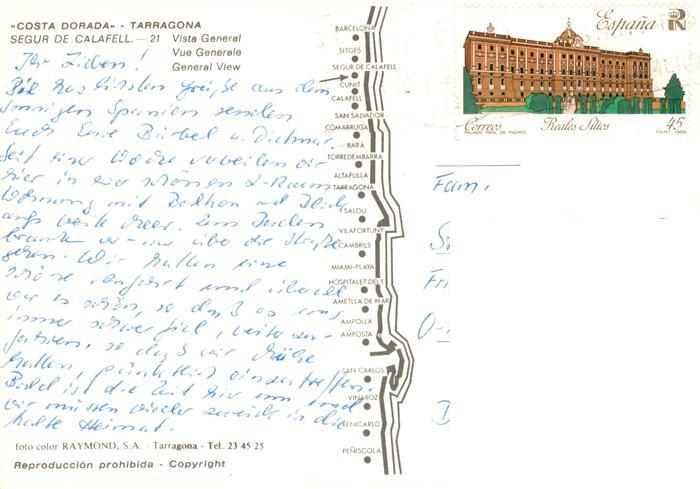 "COSTA DORADA" - TARRAGONA
SEGUR DE CALAFELL. — 21 Vista General
Vue Generale
General View
Ihr Lieben!
Die herzlichsten Grüße aus dem
sonnigen Spanien senden
Euch Eure Bärbel u. Dietmar.
Seit einer Woche verweilen wir
hier in einer schönen 2-Raum
Wohnung mit Balkon und Blick
aufs weite Meer. Zum Baden
brauchen wir nur über die Straße
gehen. Wir hatten eine
schöne und überall
war es schön, so daß es uns
immer schwer fiel, weiter zu
fahren, so daß wir Mühe
hatten, pünktlich einzutreffen.
Bald ist die Zeit hier um und
wir müssen wieder zurück in die
kalte Heimat.
foto color RAYMOND, S.A. - Tarragona - Tel. 23 45 25
Reproducción prohibida - Copyright
BARCELONA
SITGES
SEGUR DE CALAFELL
CUNIT
CALAFELL
SAN SALVADOR
COMARRUGA
BARA
TORREDEMBARRA
ALTAFULLA
TARRAGONA
SALOU
VILAFORTUNY
CAMBRILS
MIAMI-PLAYA
HOSPITALET DEL I.
AMETLLA DE MAR
AMPOLLA
AMPOSTA
SAN CARLOS
VINAROZ
BENICARLO
PEÑISCOLA
España
Correos Reales Sitios 45
PALACIO REAL DE MADRID F.N.M.T. 1989
Fam.
O-